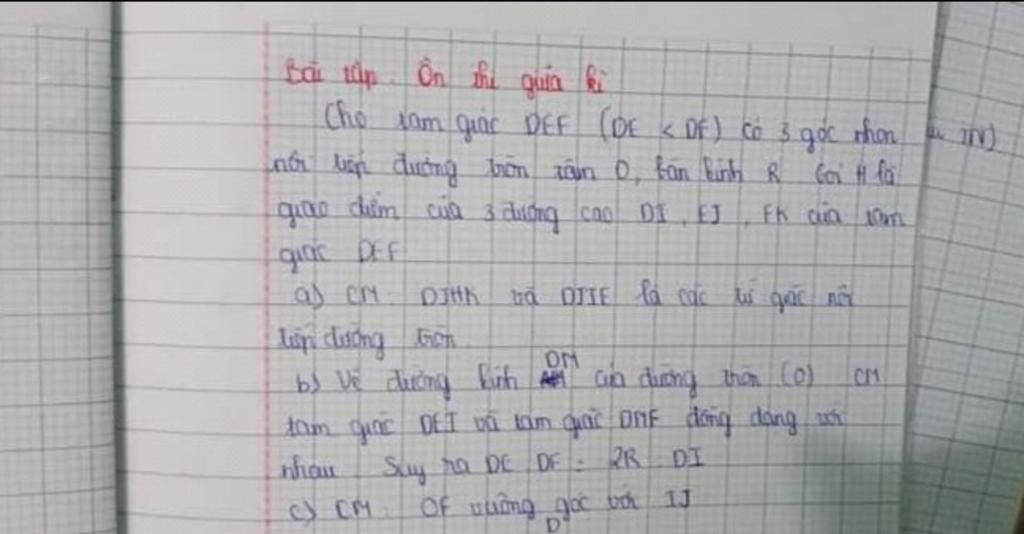 Bài tập. Ôn thi giữa kì
Cho tam giác DEF (DE < DF) có 3 góc nhọn
nội tiếp đường tròn tâm O, bán kính R Gọi H là
giao điểm của 3 đường cao DI, EJ, FK của tam
giác DEF
a) CM: DJHK và DJIE là các tứ giác nội
tiếp đường tròn
b) Vẽ đường kính DM của đường tròn (O) CM
tam giác DEI và tam giác DMF đồng dạng với
nhau Suy ra DE DF = 2R DI
c) CM: OF vuông góc với IJ
D